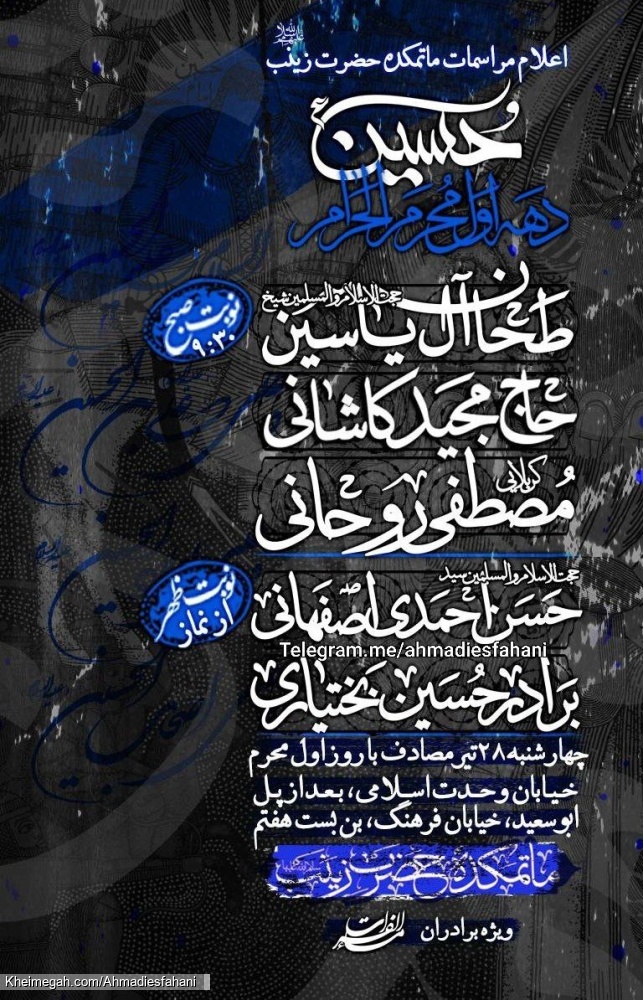 اعلام مراسمات ماتمکده حضرت زینب
حسین
دهه اول محرم الحرام
نوبت صبح
۹:۳۰
حجت الاسلام والمسلمین شیخ
طحان آل یاسین
حاج مجید کاشانی
کربلایی
مصطفی روحانی
نوبت ظهر
از نماز
حجت الاسلام والمسلمین سید
حسن احمدی اصفهانی
Telegram.me/ahmadiesfahani
برادر حسین بختیاری
چهارشنبه ۲۸ تیر مصادف با روز اول محرم
خیابان وحدت اسلامی، بعد از پل
ابوسعید، خیابان فرهنگ، بن بست هفتم
ماتمکده حضرت زینب
ویژه برادران
Kheimegah.com/Ahmadiesfahani